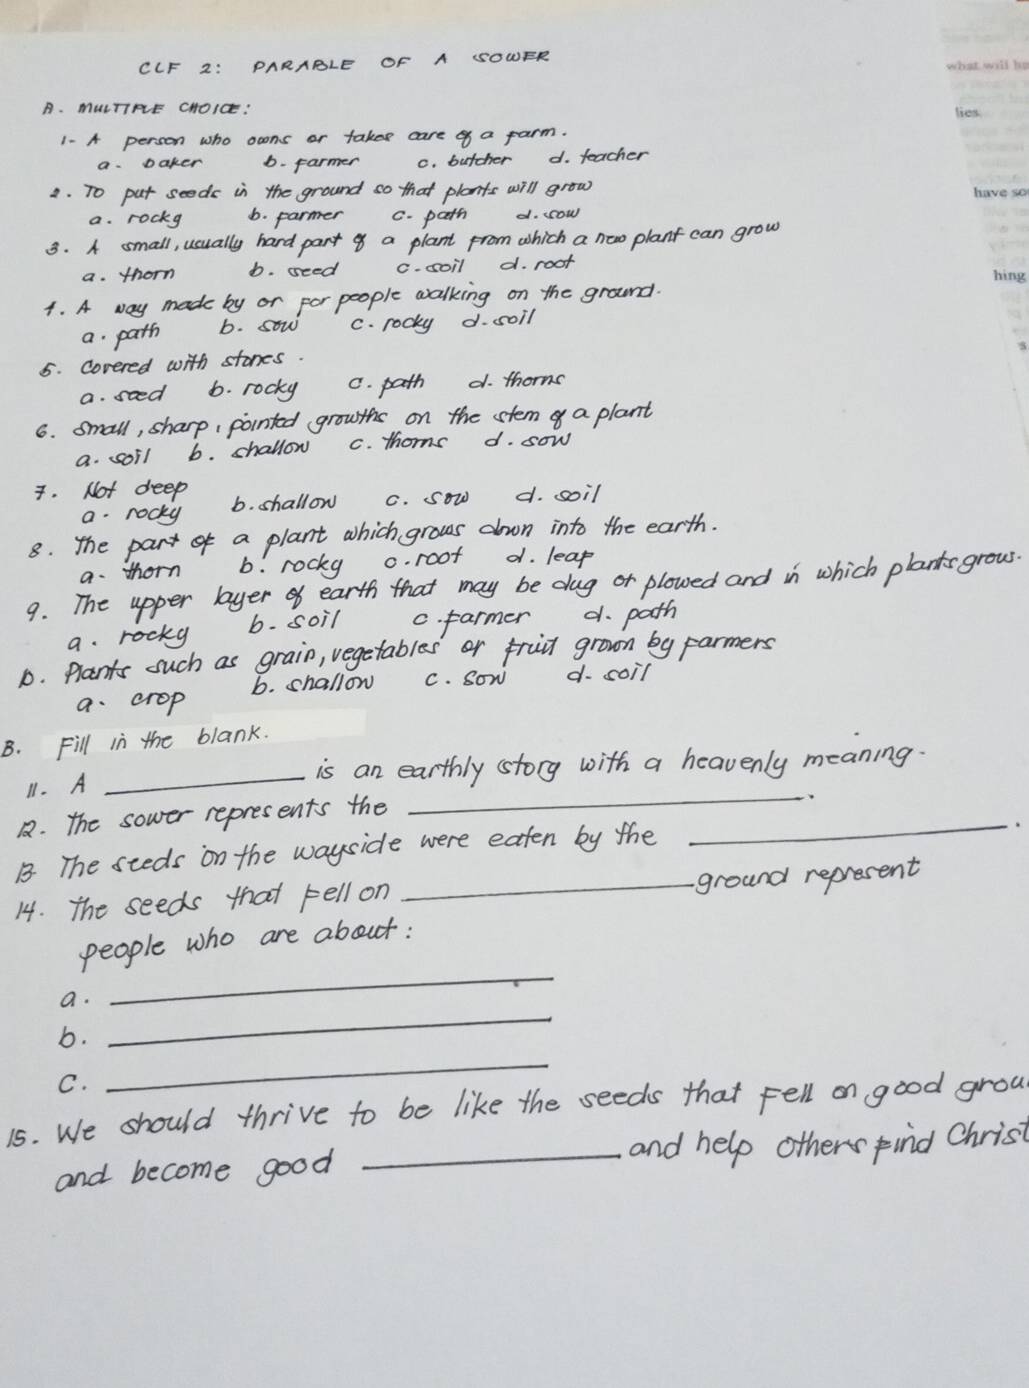 CLF 2: PARABLE OF A SOWER
what will
A. MULTIPLE CHOICE:
lies.
1- A person who owns or takes care of a farm.
a. baker b. farmer c. butcher d. teacher
2. To put seeds in the ground so that plants will grow
have so
a. rocky b. farmer c. path d. sow
3. A small, usually hard part of a plant from which a new plant can grow
a. thorn b. seed c. soil d. root
hing
4. A way made by or for people walking on the ground.
a. path b. sow c. rocky d. soil
5. Covered with stones.
a. seed b. rocky c. path d. thorns
6. Small, sharp, pointed growths on the stem of a plant
a. soil b. shallow c. thorns d. sow
7. Not deep
a. rocky b. shallow c. sow d. soil
8. The part of a plant which grows down into the earth.
a. thorn b. rocky c. root d. leaf
9. The upper layer of earth that may be dug or plowed and in which plants grows.
a. rocky b. soil c. farmer d. path
10. Plants such as grain, vegetables or fruit grown by farmers
a. crop b. shallow c. sow d. soil
B. Fill in the blank.
11. A __________ is an earthly story with a heavenly meaning.
12. The sower represents the __________.
13 The seeds on the wayside were eaten by the __________.
14. The seeds that fell on __________ ground represent
people who are about:
a. __________
b. __________
c. __________
15. We should thrive to be like the seeds that fell on good grou
and become good __________ and help others find Christ